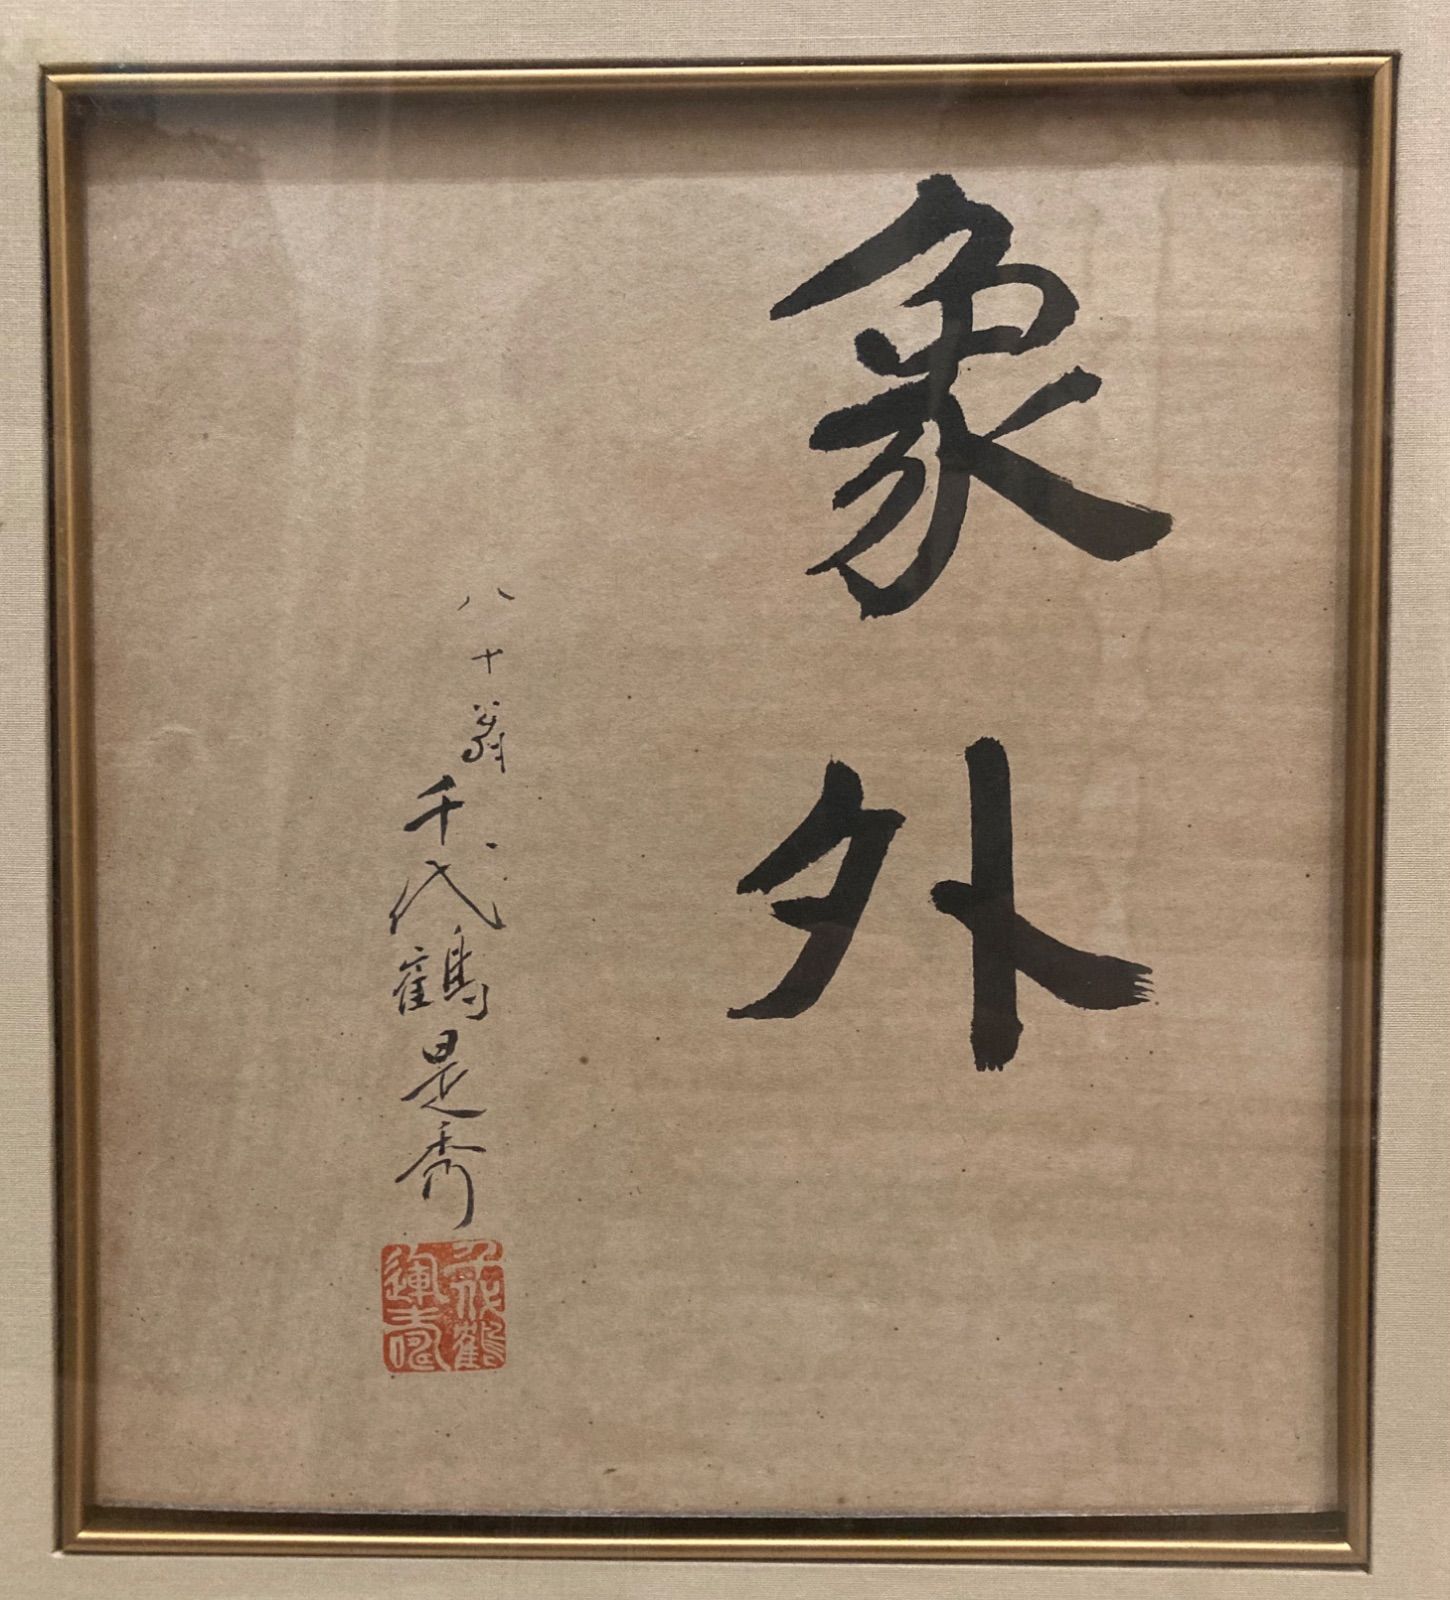 象外
八十翁
千代鶴是秀